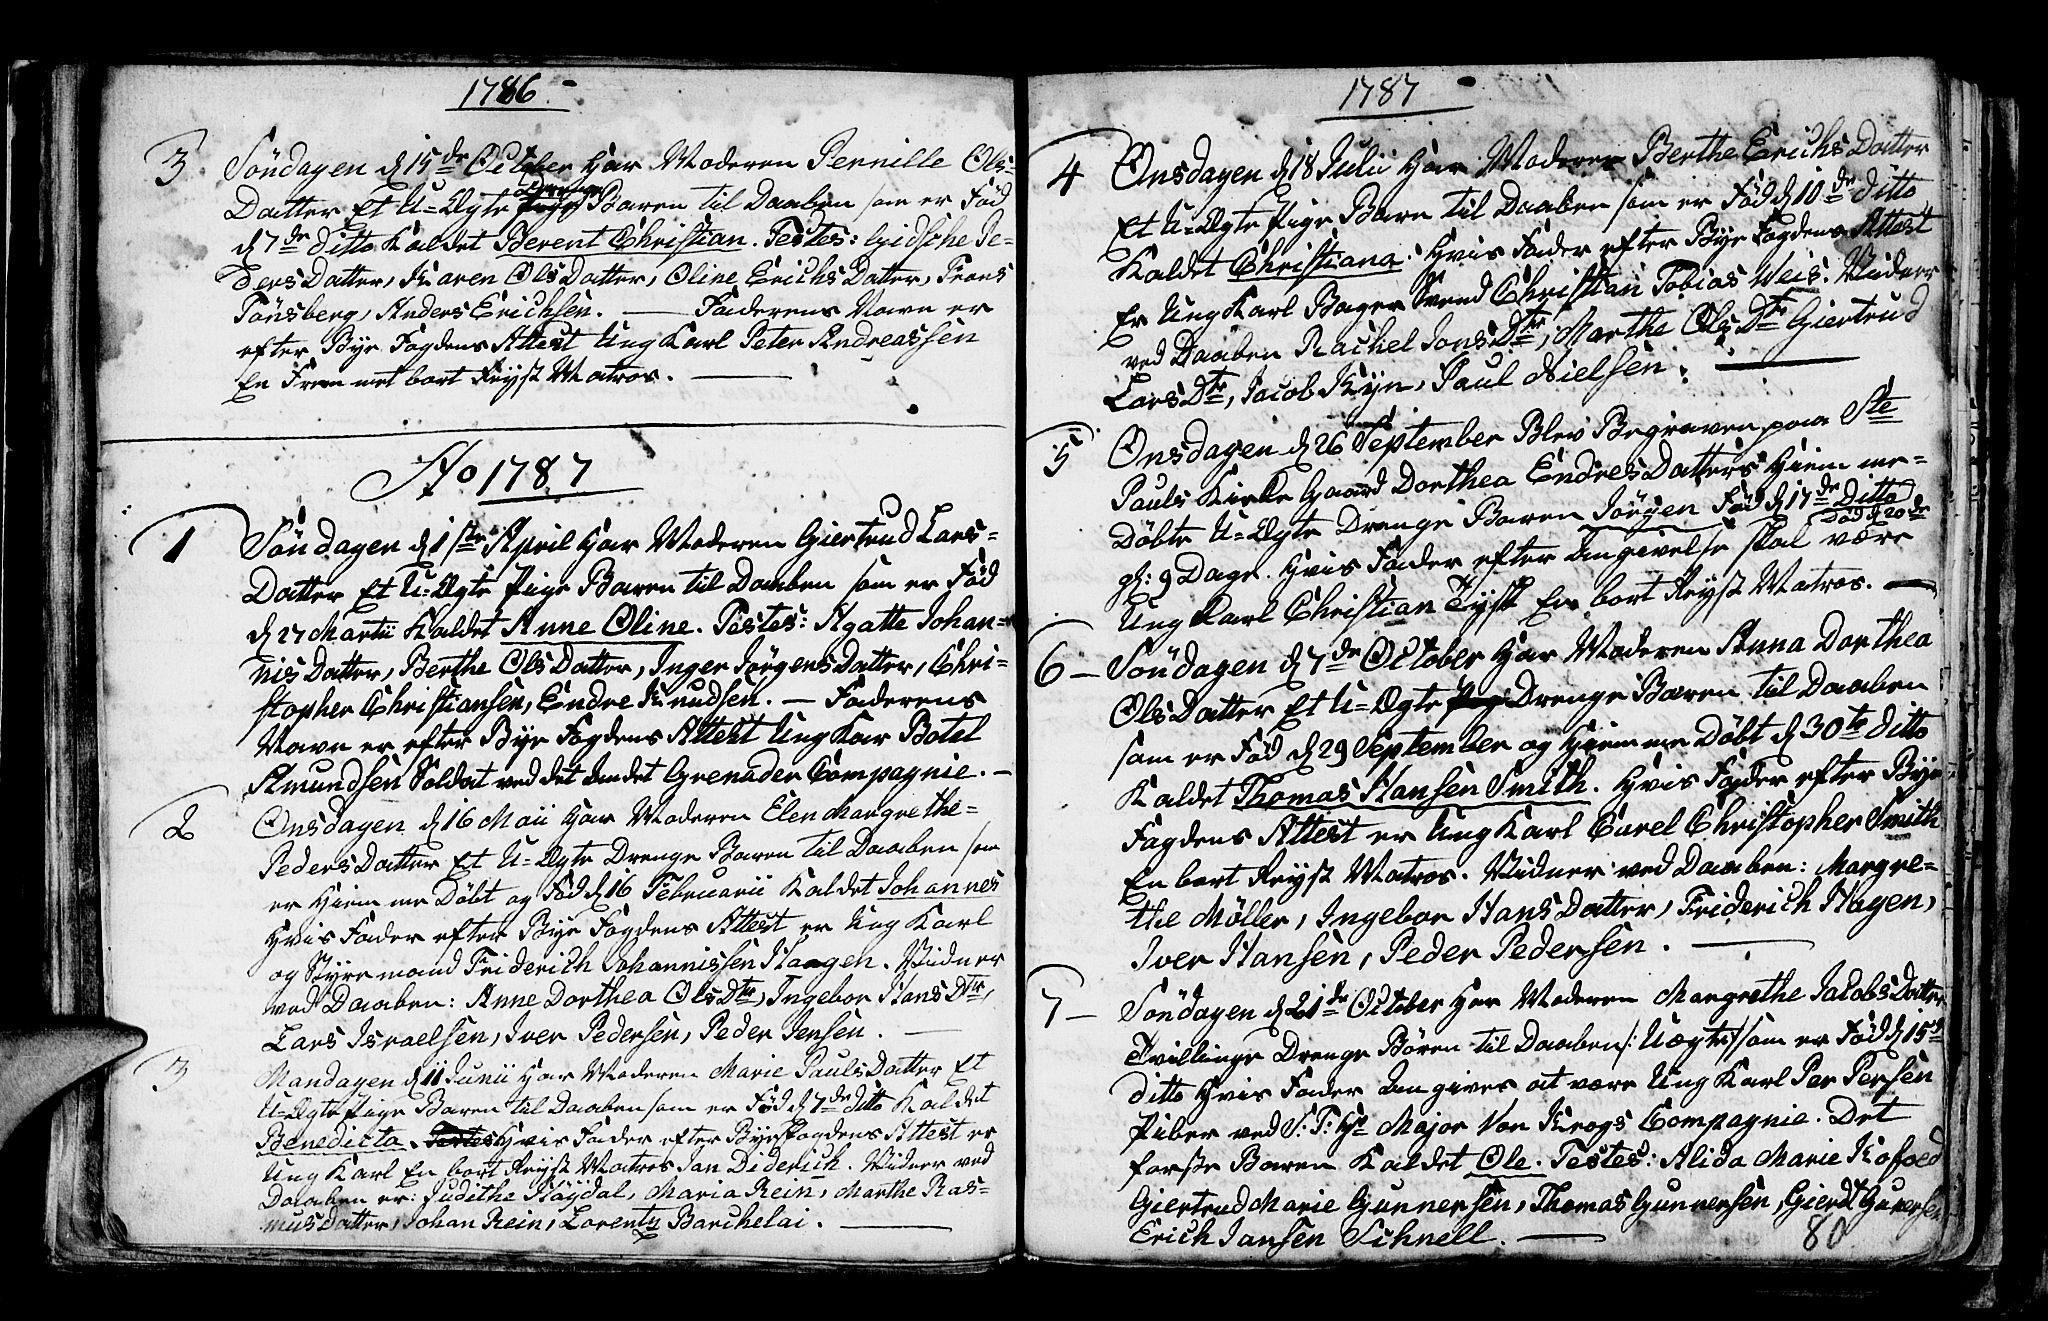 1786
3 Søndagen d 15de October Har Moderen Pernille Ols-
Datter Et U-Ægte Drenge Baren til Daaben som er Fød
d 7de ditto Kaldet Berent Christian. Testes: Gidsche Pe-
ders Datter, Karen Ols Datter, Oline Erichs Datter, Frans
Tønsberg, Anders Erichsen. — Faderens Navn er
efter Bye Fogdens Attest Ung Karl Peter Andreassen
En Fremmet bort Reyst Matros.
Ao 1787
1 Søndagen d 1ste April Har Moderen Giertrud Lars-
Datter Et U-Ægte Pige Baren til Daaben som er Fød
d 27 Martii Kaldet Anne Oline. Testes: Agatte Johan-
nis Datter, Berthe Ols Datter, Inger Jørgens Datter, Chri-
stopher Christiansen, Endre Knudsen. — Faderens
Navn er efter Bye Fogdens Attest Ung Kar Botel
Amundsen Soldat ved det Andet Grenader Compagnie. —
2 Onsdagen d 16 Maii Har Moderen Elen Margrethe-
Peders Datter Et U-Ægte Drenge Baren til Daaben som
er Hiemme Døbt og Fød d 16 Februarii Kaldet Johannes
Hvis Fader efter Bye Fogdens Attest er Ung Karl
og Styrmand Friderich Johannissen Haagen. Vidner
ved Daaben: Anne Dorthea Ols Dtr, Ingebor Hans Dtr,
Lars Israelsen, Iver Pedersen, Peder Jensen.
3 Mandagen d 11 Junii Har Moderen Marie Pauls Datter Et
U-Ægte Pige Baren til Daaben som er Fød d 7de ditto Kaldet
Benedicta. Testes Hvis Fader efter Bye Fogdens Attest er
Ung Karl En bort Reyst Matros Jan Diderich. Vidner ved
Daaben er: Judithe Høydal, Maria Rein, Marthe Ras-
mus Datter, Johan Rein, Lorentz Barchelai.
1787
4 Onsdagen d 18 Julii Har Moderen Berthe Erichs Datter
Et U-Ægte Pige Barn til Daaben som er Fød d 10de ditto
Kaldet Christiana. Hvis Fader efter Bye Fogdens Attest
Er Ung Karl Bager Svend Christian Tobias Weis. Vidner
ved Daaben Rachel Jons Dtr, Marthe Ols Dtr Giertrud
Lars Dtr, Jacob Kyn, Paul Nielsen.
5 Onsdagen d 26 September Blev Begraven paa Ste
Pauls Kirke Gaard Dorthea Endres Datters Hiem me-
Døbte U-Ægte Drenge Baren Jørgen Fød d 17de Ditto
Død d 20de
gl: 9 Dage. Hvis Fader efter Angivelse skal være
Ung Karl Christian Tysk En bort Reyst Matros. —
6 – Søndagen d 7de October Har Moderen Anna Dorthea
Ols Datter Et U-Ægte Drenge Baren til Daaben
som er Fød d 29 September og Hiemme Døbt d 30te ditto
Kaldet Thomas Hansen Smith. Hvis Fader efter Bye
Fogdens Attest er Ung Karl Carel Christopher Smith
En bort Reyst Matros. Vidner ved Daaben: Margre-
the Møller, Ingebor Hans Datter, Friderich Hagen,
Iver Hansen, Peder Pedersen.
7 – Søndagen d 21de October Har Moderen Margrethe Jacobs Datter
Tvillinge Drenge Børen til Daaben /: Uægte :/ som er Fød d 15de
ditto Hvis Fader Angives at være Ung Karl Per Persen
Piber ved S: T: Hr Major Von Krogs Compagnie. Det
første Baren Kaldet Ole. Testes: Alida Marie Kofoed
Giertrud Marie Gunnersen, Thomas Gunnersen, Gierdt Gunersen
Erich Jansen Schnell.
80